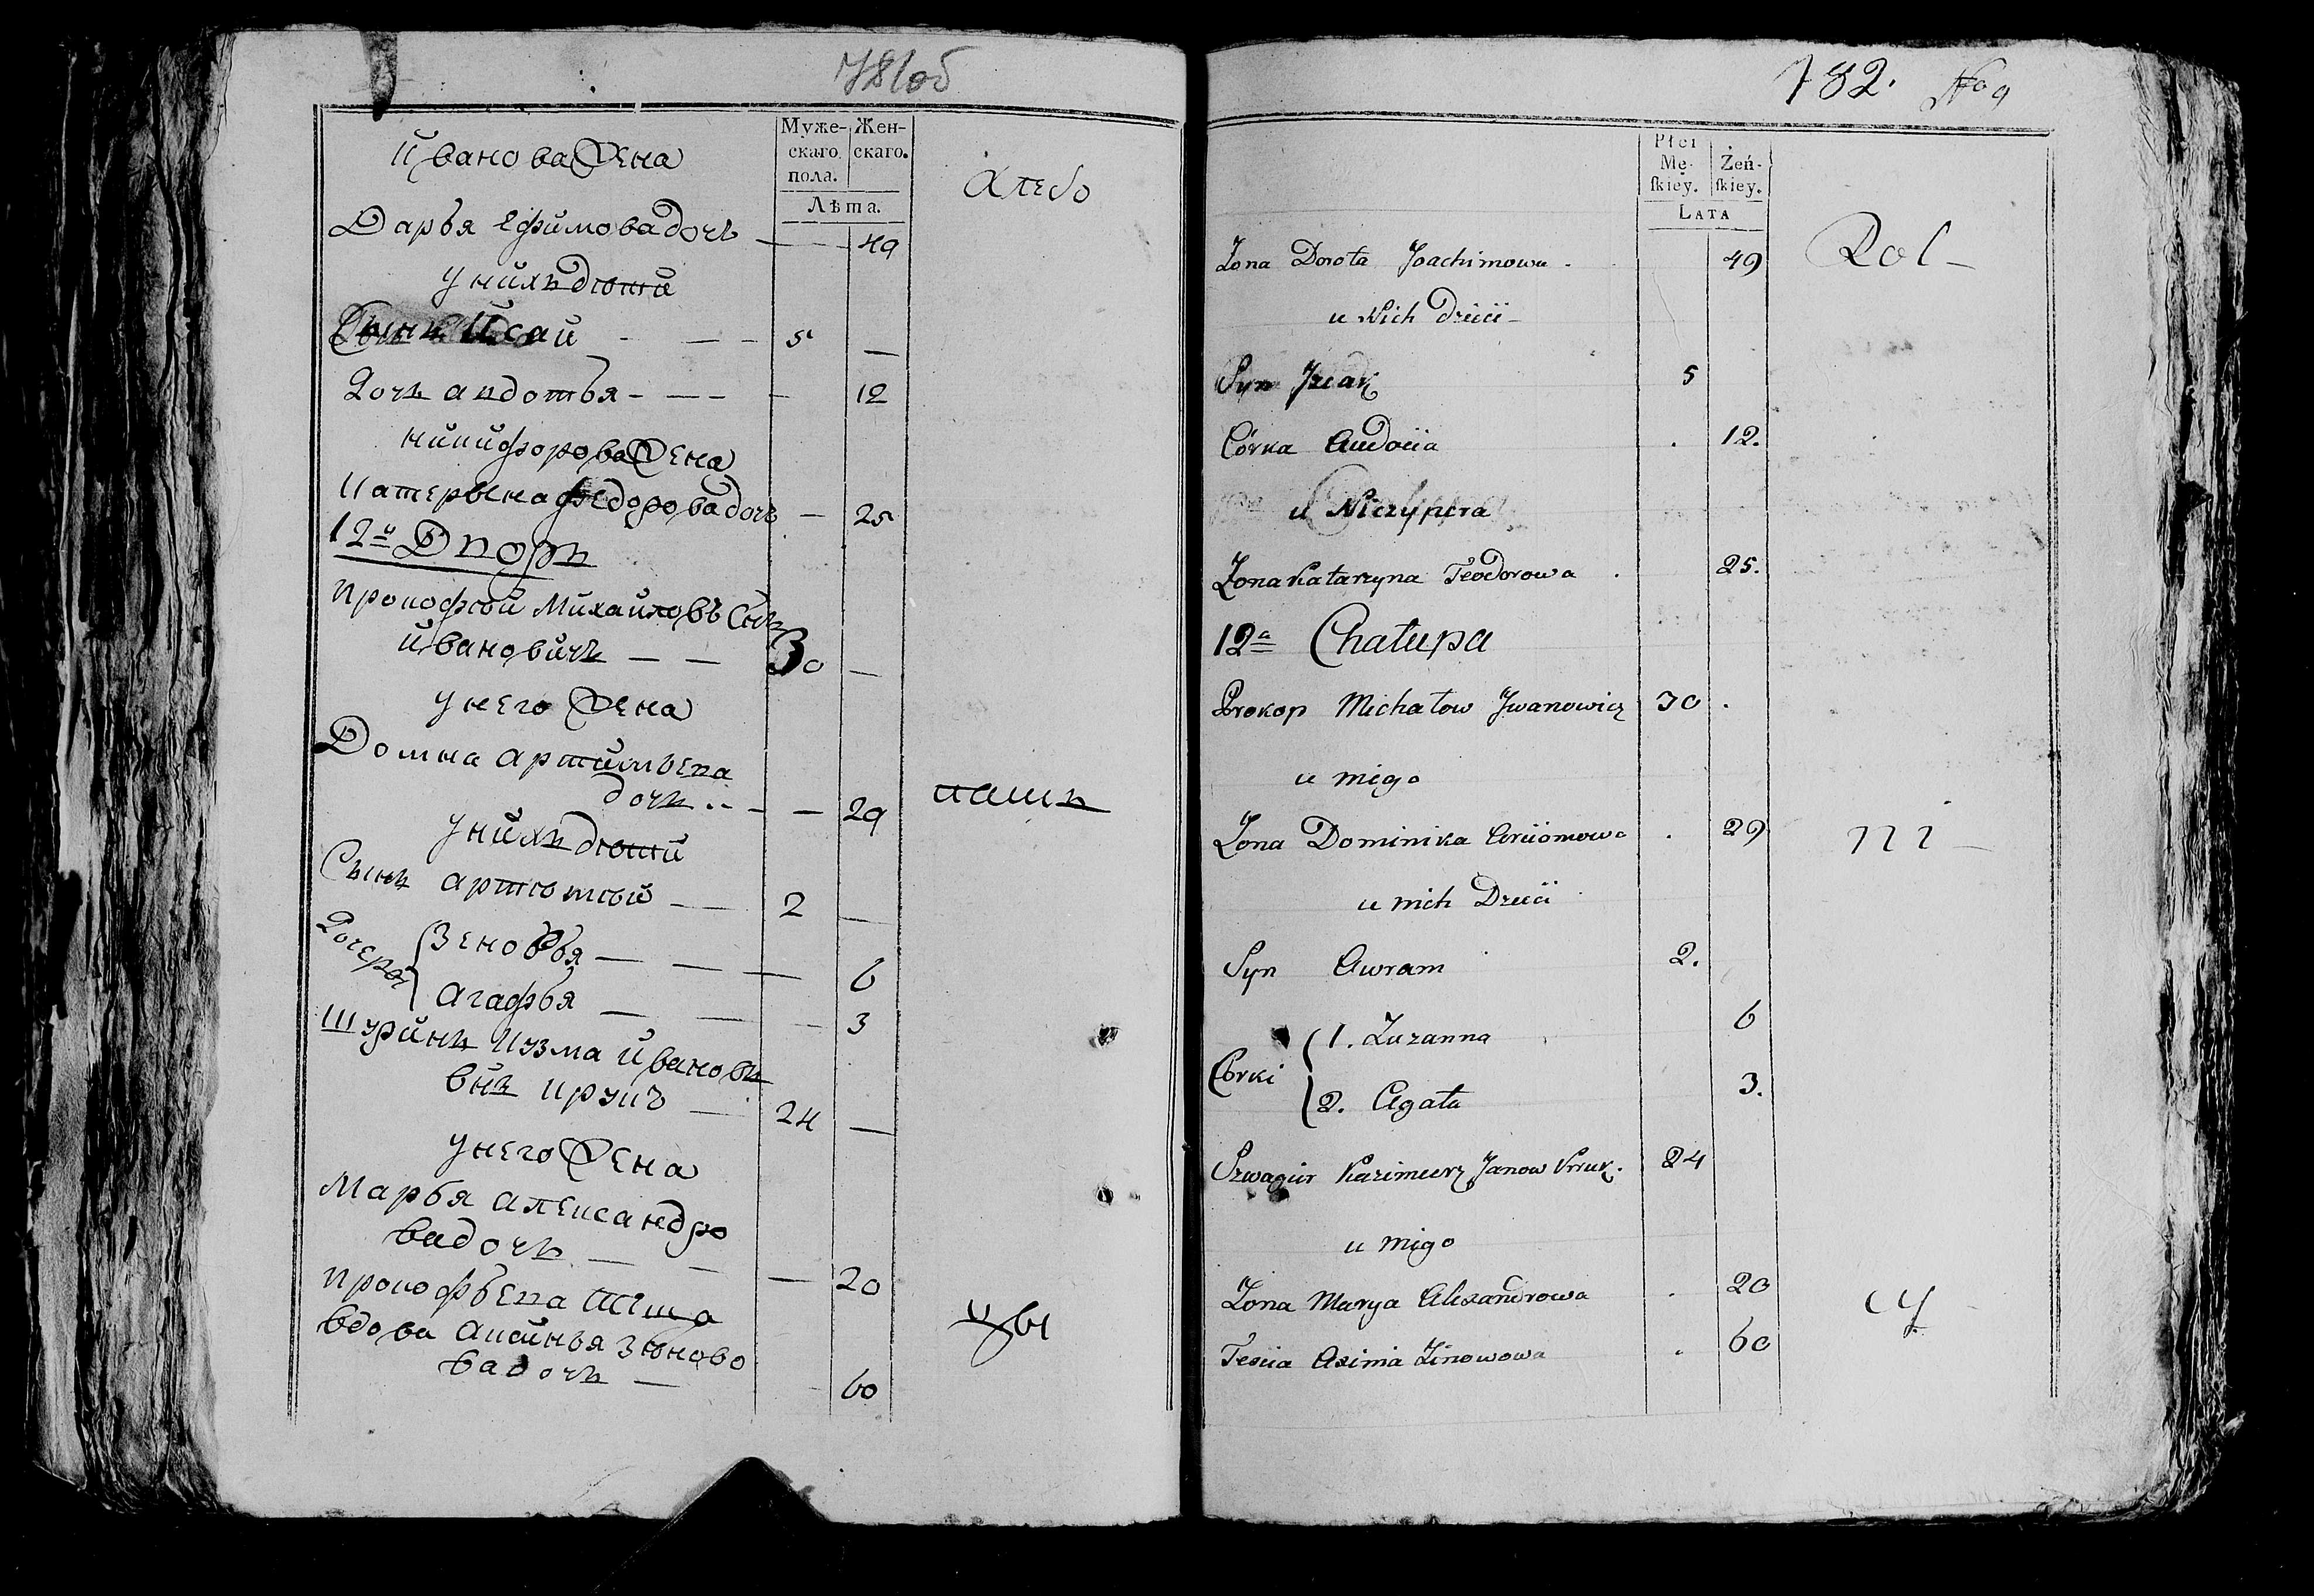 781об
Мужескаго пола.
Женскаго.
Лѣта.
Иванова жена
Дарья Ефимова дочь — 49
у нихъ дѣти
Сынъ Исай — 5 —
Дочь Авдотья — 12
Никифорова жена
Катерына Федорова дочь — 25
12й Дворъ
Прокофей Михайловъ Сынъ
Ивановичь — — 30 —
у него жена
Домна Артимьева
дочь — 29
у нихъ дѣти
Сынъ — 2 —
Дочери Зеновья — 6
Агафья — 3
Шуринъ Кузма Иванов
Крукъ — 24 —
у него жена
Марья Александро
ва дочь — 20
Прокофьева теща
вдова Аксинья Зѣново
ва дочь — 60
хлебо
паш
цы
782. No 9
Płci
Męskiey.
Żeńskiey.
LATA
Żona Dorota Joachimowa 49
u Nich Dzieci
Syn Izaak 5
Córka Audocia 12.
u Niczypora
Żona Katarzyna Teodorowa 25.
12a Chałupa
Prokop Michałow Jwanowicz 30
u niego
Żona Dominika Arciomowa 29
u nich Dzieci
Syn Awram 2.
Córki
1. Zuzanna 6
2. Agata 3.
Szwagier Kazimierz Janow Kruk. 24
u niego
Żona Marya Alexandrowa 20
Teścia Axinia Zinowowa 60
Rol-
ni-
cy